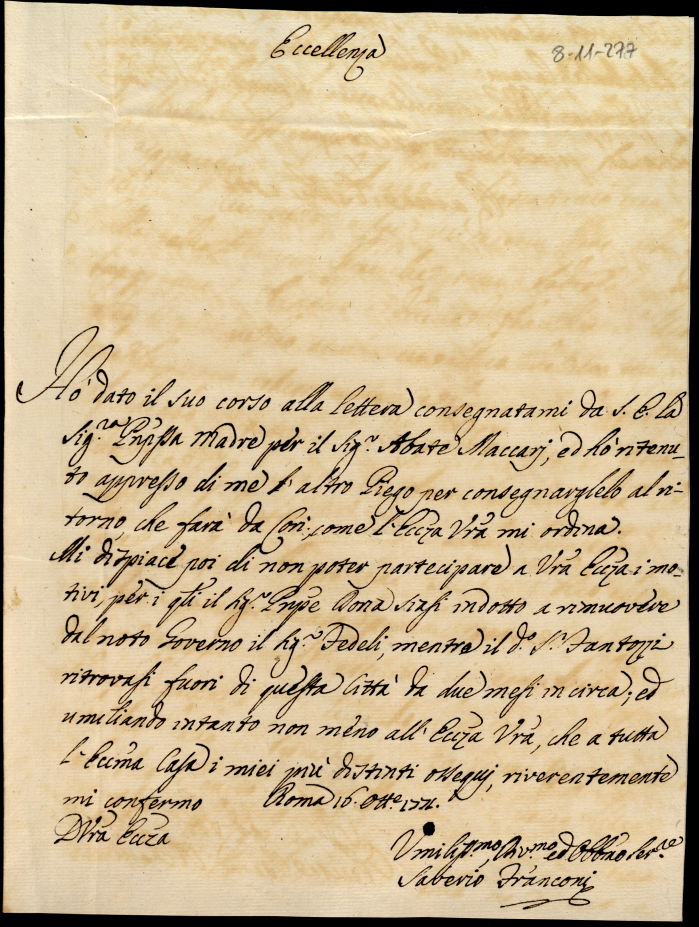 Eccellenza
8-11-277
Hò dato il suo corso alla lettera consegnatami da S. E. la
Sig.ra Pnpssa Madre per il Sig.r Abate Maccarj, ed hò ritenu-
to appresso di me l'altro Piego per consegnarglelo al ri-
torno, che farà da Cori: come l'Ecc̃za Vr̃a mi ordina.
Mi dispiace poi di non poter partecipare a Vr̃a Ecc̃za i mo-
tivi, per i q̃li il Sig.r Pnpe Dona siasi indotto a rimuovere
dal noto Governo il Sig.r Fedeli, mentre il d.o S.r Fantozzi
ritrovasi fuori di questa Città da due mesi in circa; ed
umiliando intanto non meno all'Ecc̃za Vr̃a, che a tutta
l'Ecc̃ma Casa i miei più distinti ossequj, riverentemente
mi confermo Roma 16. Ott.e
D Vr̃a Ecc̃za
Umiliss.mo Div.mo ed Obb̃mo Ser.re
Saverio Franconi